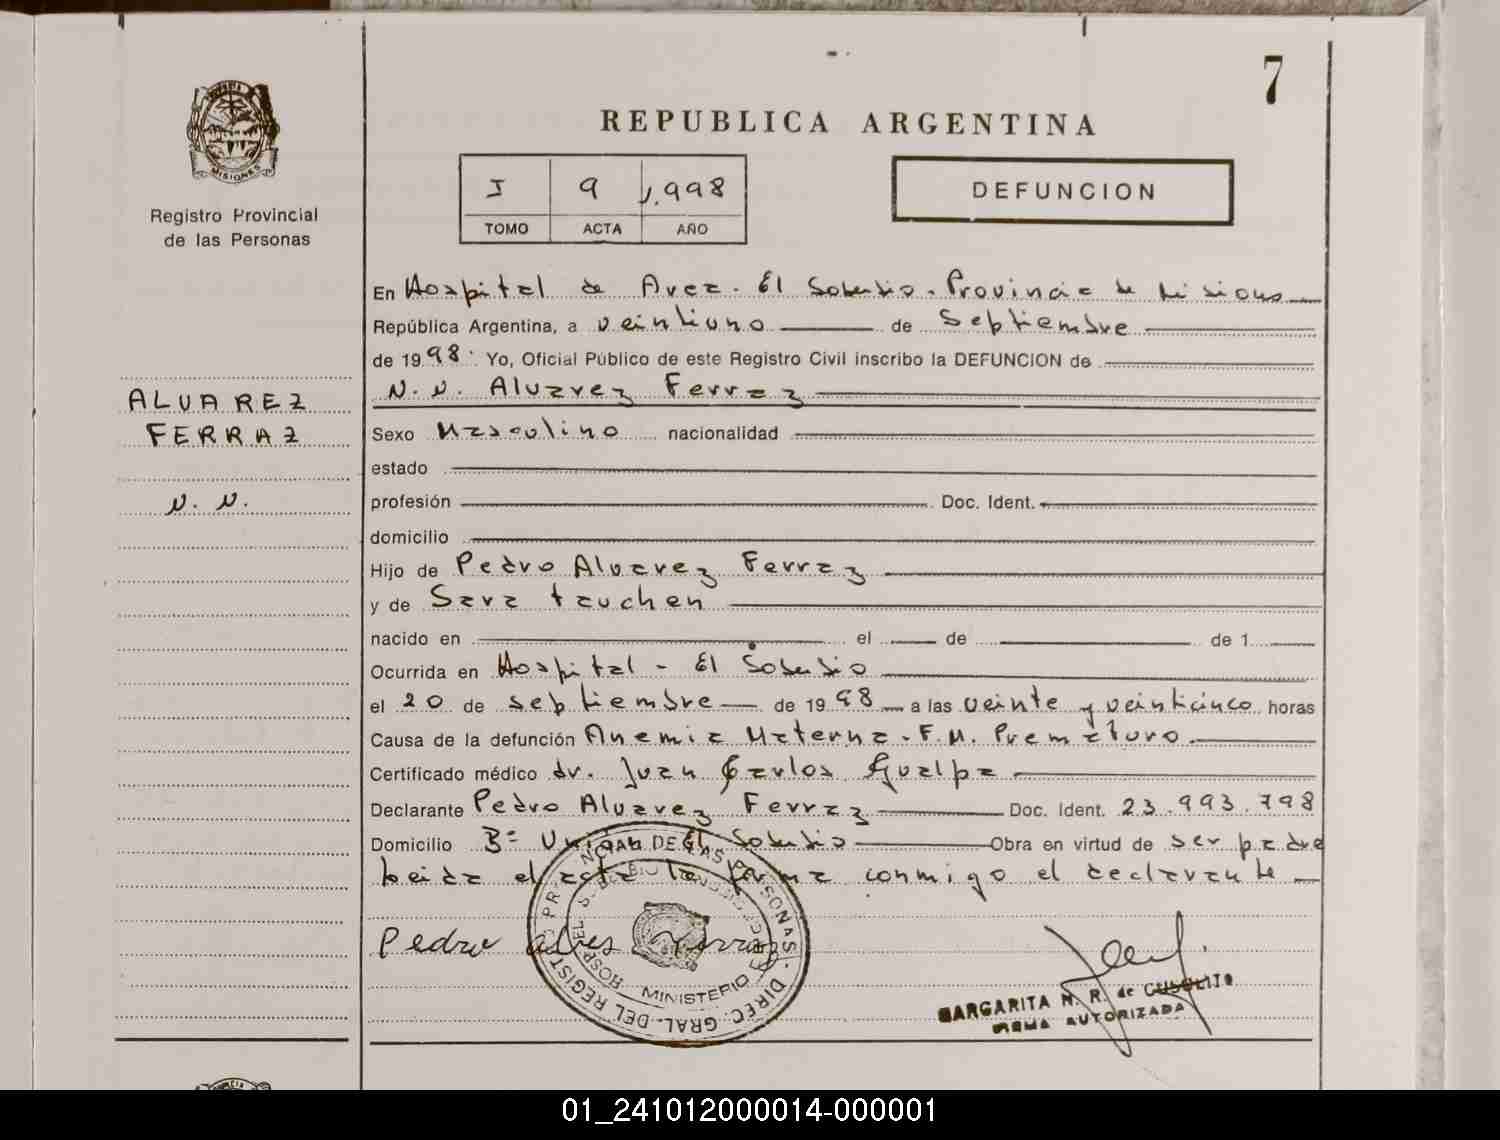 7
REPUBLICA ARGENTINA
MISIONES
Registro Provincial
de las Personas
I 9 1.998
TOMO ACTA AÑO
DEFUNCION
ALVAREZ
FERRAZ
N. N.
En Hospital de Area. El Soberbio. Provincia de Misiones
República Argentina, a veintiuno de Septiembre
de 1998. Yo, Oficial Público de este Registro Civil inscribo la DEFUNCION de
N. N. Alvarez Ferraz
Sexo Masculino nacionalidad
estado
profesión Doc. Ident.
domicilio
Hijo de Pedro Alvarez Ferraz
y de Sara tauchen
nacido en el de de 1
Ocurrida en Hospital - El Soberbio
el 20 de septiembre de 1998 a las veinte y veinticinco horas
Causa de la defunción Anemia Materna. F.M. Prematuro.
Certificado médico dr. Juan Carlos Gualpa
Declarante Pedro Alvarez Ferraz Doc. Ident. 23.993.798
Domicilio Bº Unión El Soberbio Obra en virtud de ser padre
Leida el acta la firma conmigo el declarante
Pedro alves Ferraz
DIREC. GRAL. DEL REGISTRO PROVINCIAL DE LAS PERSONAS
MINISTERIO DE
MARGARITA N. R. de
FIRMA AUTORIZADA
01_241012000014-000001